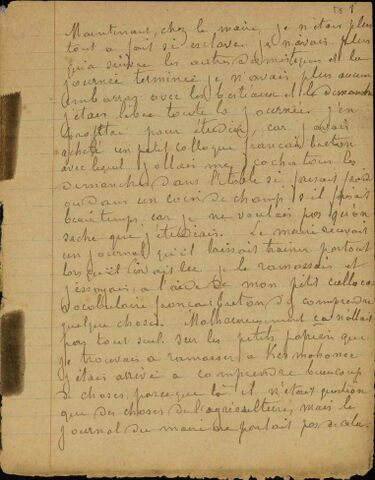 Maintenant, chez le maire, je n'étais plus
tout a fait si esclave. je n'avais plus
qu'a suivre les autres domestiques et la
journée terminée je n'avais plus aucun
embarras avec les bestiaux et le dimanche
j'étais libre toute la journée. j'en
profitai pour étudier, car j'avais
acheté un petit colloque français breton
avec lequel j'allais me cacher tous les
dimanches dans l'étable si faisait froid
ou dans un coin de champ s'il faisait
beau temps, car je ne voulais pas qu'on
sache que j'étudiais. Le maire recevait
un journal qu'il laissait trainer partout
lorsqu'il l'avait lu. je le ramassais et
j'essayais, a l'aide de mon petit colloco
vocabulaire français breton d'y comprendre
quelque chose. Malheureusement ça n'allait
pas tout seul. sur les petits papiers que
je trouvais a ramasser, a Kermahonec
j'étais arrivé a comprendre beaucoup
de choses, parce que là il n'était question
que des choses de l'agriculture, mais le
journal du maire ne parlait pas de cela.